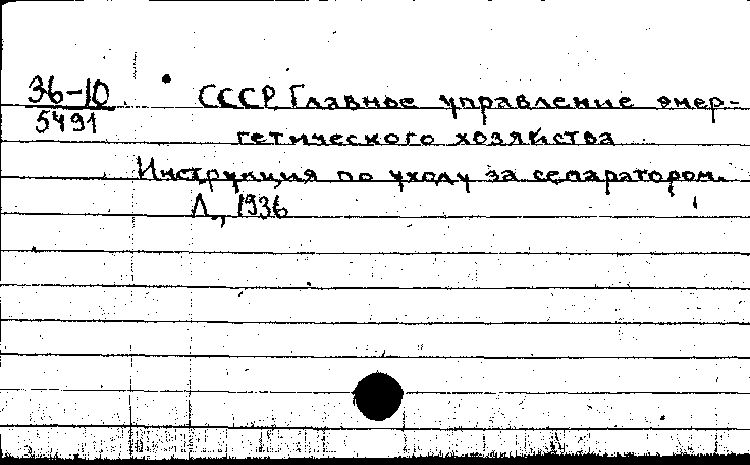 36-10
5491
СССР. Главное управление энер-
гетического хозяйства
Инструкция по уходу за сепаратором.
Л., 1936